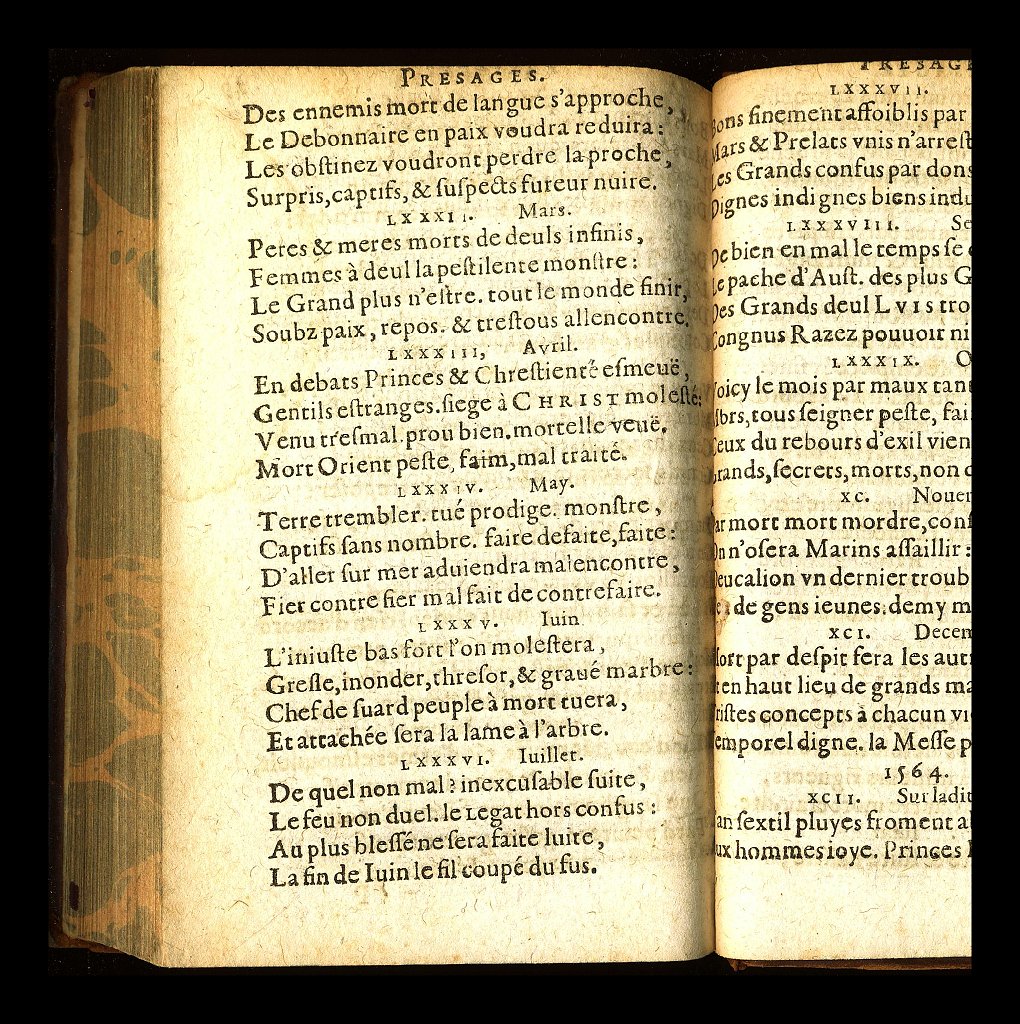 PRESAGES.
Des ennemis mort de langue s'approche,
Le Debonnaire en paix voudra reduira:
Les obſtinez voudront perdre la proche,
Surpris, captifs, & ſuſpects fureur nuire.
LXXXII. Mars.
Peres & meres morts de deuls infinis,
Femmes à deul la peſtilente monſtre:
Le Grand plus n'eſtre. tout le monde finir,
Soubz paix, repos. & treſtous allencontre.
LXXXIII, Avril.
En debats Princes & Chreſtienté eſmeuë,
Gentils eſtranges. ſiege à CHRIST moleſté:
Venu treſmal. prou bien. mortelle veuë.
Mort Orient peſte, faim, mal traité.
LXXXIV. May.
Terre trembler. tué prodige. monſtre,
Captifs ſans nombre. faire defaite, faite:
D'aller ſur mer aduiendra malencontre,
Fier contre fier mal fait de contrefaire.
LXXXV. Iuin
L'iniuſte bas fort l'on moleſtera,
Greſle, inonder, threſor, & graué marbre:
Chef de ſuard peuple à mort tuera,
Et attachée ſera la lame à l'arbre.
LXXXVI. Iuillet.
De quel non mal? inexcuſable ſuite,
Le feu non duel. le Legat hors confus:
Au plus bleſſé ne ſera faite luite,
La fin de Iuin le fil coupé du fus.
PRESAG
LXXXVII.
Bons finement affoiblis par
Mars & Prelats vnis n'arreſt
Les Grands confus par dons
Dignes indignes biens indu
LXXXVIII. Se
De bien en mal le temps ſe
Le pache d'Auſt. des plus G
Des Grands deul LVIS tro
Congnus Razez pouuoir ni
LXXXIX. O
Voicy le mois par maux tan
Mars, tous ſeigner peſte, fai
Ceux du rebours d'exil vien
Grands, ſecrets, morts, non
XC. Nouem
Par mort mort mordre, conſ
On n'oſera Marins aſſaillir:
Deucalion vn dernier troub
de gens ieunes: demy m
XCI. Decem
Mort par deſpit fera les aut
en haut lieu de grands ma
Triſtes concepts à chacun vi
Temporel digne. la Meſſe p
1564.
XCII. Sur ladit
an ſextil pluyes froment a
aux hommes ioye. Princes